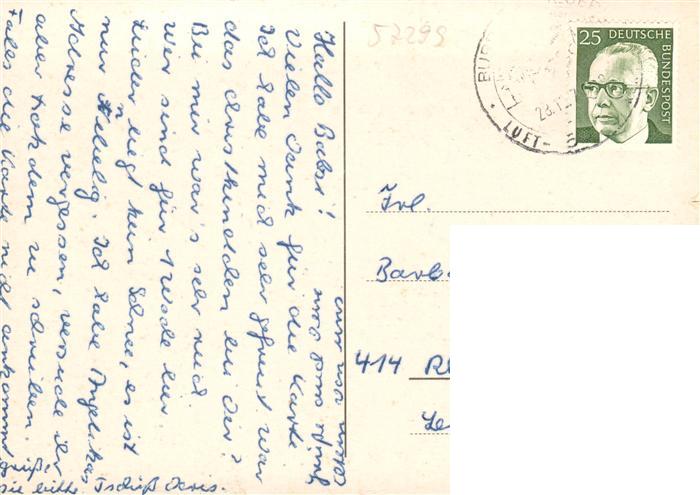 Hallo Babsi!
Vielen Dank für die Karte
Ich habe mich sehr gefreut war
das Christkindchen bei Dir?
Bei mir war's sehr nett
Wir sind für 1 Woche hier
Leider liegt kein Schnee, es ist
nur Nebelig. Ich habe Angelikas
Adresse vergessen, versuche ihr
aber trotzdem zu schreiben.
Falls die Karte nicht ankommt
grüße
sie bitte. Tschüß Doris.
57299
25 DEUTSCHE
BUNDESPOST
LUFT-
Frl.
Barb
414 Rh